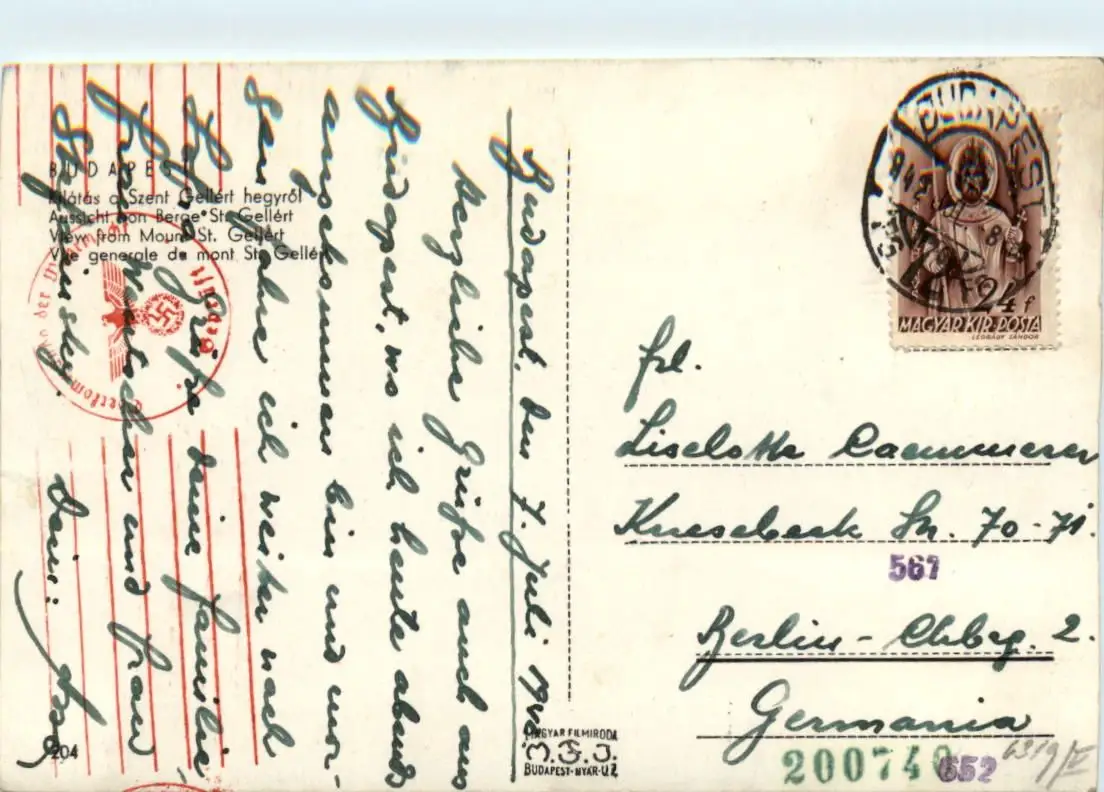 BUDAPEST
Kilátás a Szent Gellért hegyről
Aussicht von Berge St. Gellért
View from Mount St. Gellért
Vue generale du mont St. Gellért
Budapest, den 7. Juli
Herzliche Grüße auch aus
Budapest, wo ich heute abends
angekommen bin und mor-
gen fahre ich weiter nach
Grüße deine Familie
und Frau
Dein:
204
MAGYAR FILMIRODA
M.F.I.
BUDAPEST-NYÁR-U.7.
BUDAPEST
24 f
MAGYAR KIR. POSTA
LÉGRÁDY SÁNDOR
Geöffnet
Frl.
Liselotte
Knesebeck Str. 70-71.
567
Berlin - Chbrg. 2.
Germania
200740
552